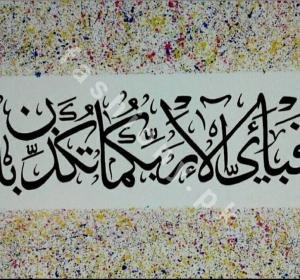 فبأيِّ آلاءِ ربِّكُمَا تُكَذِّبان